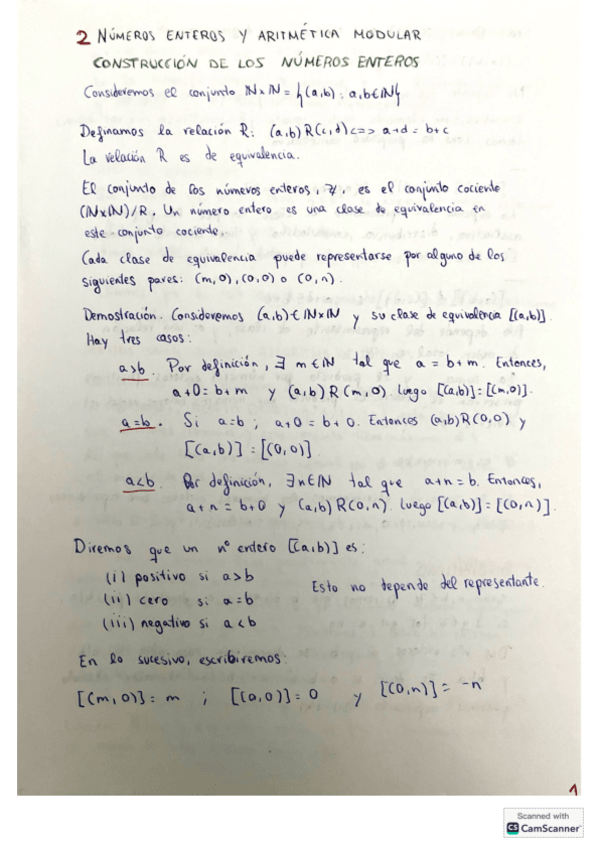 2 NÚMEROS ENTEROS Y ARITMÉTICA MODULAR
CONSTRUCCIÓN DE LOS NÚMEROS ENTEROS
Consideremos el conjunto ℕxℕ = {(a,b) : a,b∈ℕ}
Definamos la relación R: (a,b)R(c,d) <=> a+d = b+c
La relación R es de equivalencia.
El conjunto de los números enteros, ℤ, es el conjunto cociente
(ℕxℕ)/R. Un número entero es una clase de equivalencia en
este conjunto cociente.
Cada clase de equivalencia puede representarse por alguno de los
siguientes pares: (m,0), (0,0) o (0,n).
Demostración. Consideremos (a,b)∈ℕxℕ y su clase de equivalencia [(a,b)].
Hay tres casos:
a>b. Por definición, ∃ m∈ℕ tal que a = b+m. Entonces,
a+0=b+m y (a,b)R(m,0). Luego [(a,b)]=[(m,0)].
a=b. Si a=b; a+0=b+0. Entonces (a,b)R(0,0) y
[(a,b)]=[(0,0)].
a<b. Por definición, ∃n∈ℕ tal que a+n=b. Entonces,
a+n=b+0 y (a,b)R(0,n). Luego [(a,b)]=[(0,n)].
Diremos que un nº entero [(a,b)] es:
(i) positivo si a>b
(ii) cero si a=b Esto no depende del representante.
(iii) negativo si a<b
En lo sucesivo, escribiremos:
[(m,0)]=m ; [(0,0)]=0 y [(0,n)]=-n
1
Scanned with
CS CamScanner